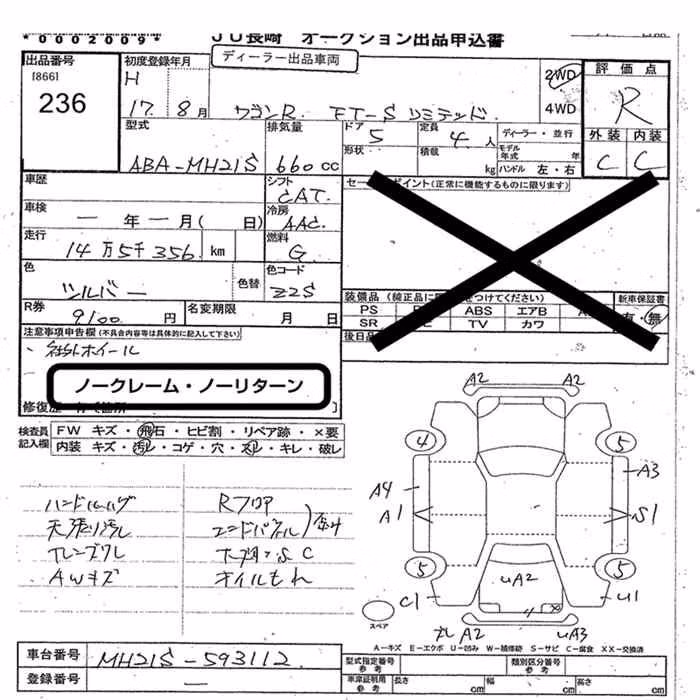 *0002009* JU長崎 オークション出品申込書
ディーラー出品車両
出品番号
[866]
236
初度登録年月
H
17. 8 月 ワゴンR FT-Sリミテッド
2WD
4WD
評価点
R
外装 内装
C C
型式
ABA-MH21S
排気量
660 cc
ドア 5
形状
定員 4 人
積載 kg
ディーラー・並行
モデル年式 年
ハンドル 左・右
車歴
シフト
CAT.
車検
一 年 一 月( 日)
冷房
AAC.
走行
14万5千356. km
燃料
G
色
シルバー
色替
色コード
Z2S
R券
9100 円
名変期限
月 日
セールスポイント(正常に機能するものに限ります)
装備品 (純正品に○をつけてください)
新車保証書
PS ABS エアB
SR TV カワ
有・無
後日品
注意事項申告欄(不具合内容等は具体的に記入して下さい)
社外ホイール
ノークレーム・ノーリターン
修復歴
検査員
記入欄
FW キズ・飛石・ヒビ割・リペア跡・×要
内装 キズ・汚レ・コゲ・穴・スレ・キレ・破レ
天張り汚れ
AWキズ
Rフロア
エンドパネル
オイルもれ
A2 A2
4 5
A4 A3
A1 S1
5 5
C1 U1
uA2
A2 uA3
スペア
A=キズ E=エクボ U=凹み W=補修跡 S=サビ C=腐食 XX=交換済
車台番号
MH21S-593112.
登録番号
型式指定番号
参考
類別区分番号
参考
車庫証明用
参考
長さ cm 幅 cm 高さ cm